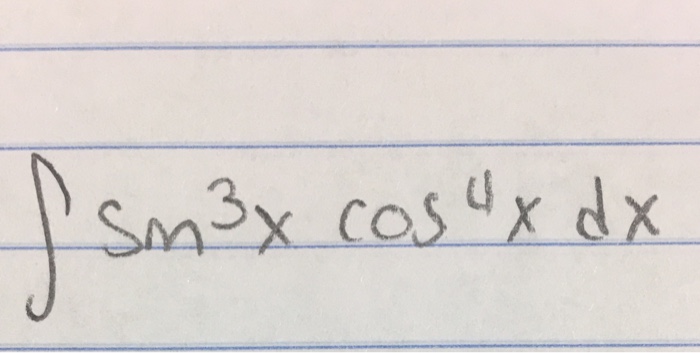 ∫ sin³x cos⁴x dx